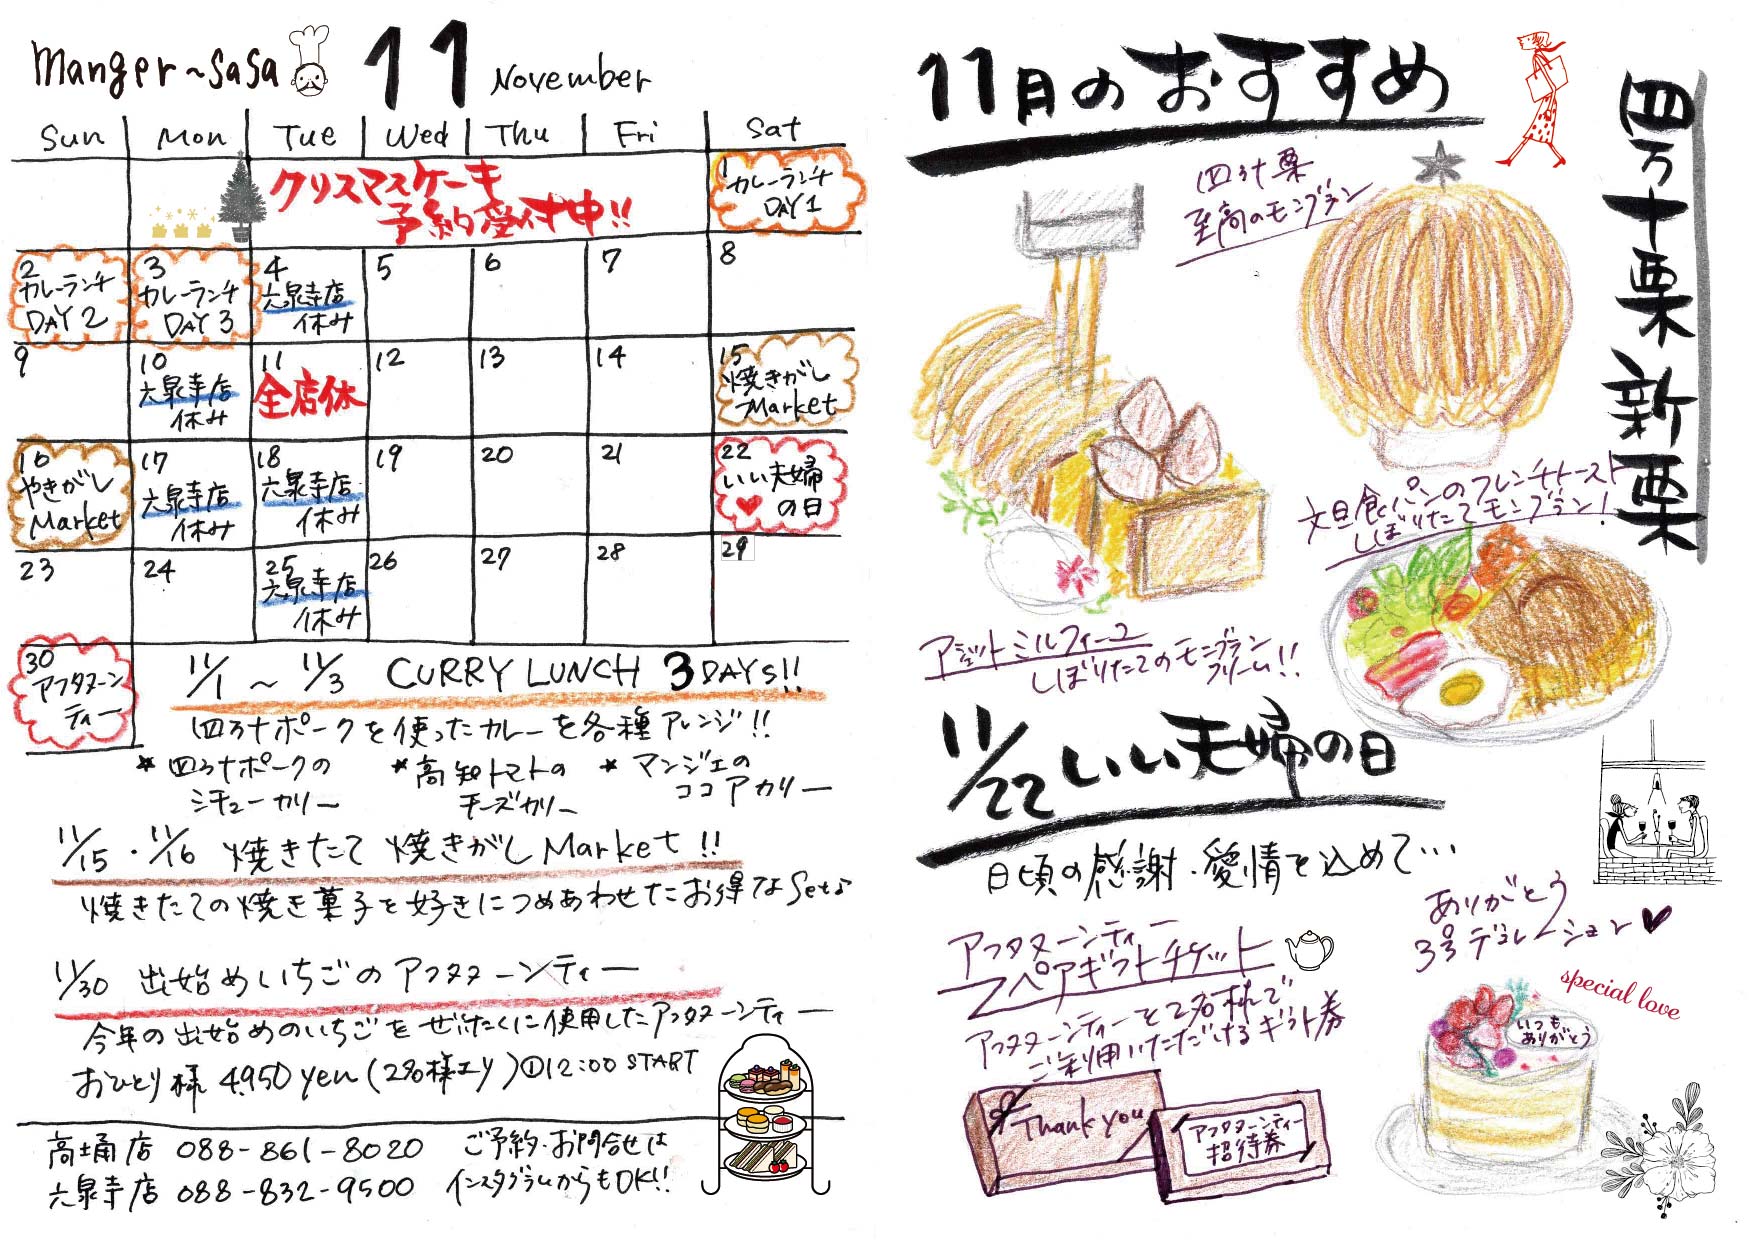 manger~sasa 11 November
Sun Mon Tue Wed Thu Fri Sat
クリスマスケーキ
予約受付中!!
1
カレーランチ
DAY1
2
カレーランチ
DAY 2
3
カレーランチ
DAY 3
4
六泉寺店
休み
5
6
7
8
9
10
六泉寺店
休み
11
全店休
12
13
14
15
焼きがし
Market
16
やきがし
Market
17
六泉寺店
休み
18
六泉寺店
休み
19
20
21
22
いい夫婦
♥の日
23
24
25
六泉寺店
休み
26
27
28
29
30
アフタヌーン
ティー
11/1 ~ 11/3 CURRY LUNCH 3DAYS!!
四万十ポークを使ったカレーを各種アレンジ!!
★四万十ポークの
シチューカリー
★高知トマトの
チーズカリー
★マンジェの
ココアカリー
11/15・11/16 焼きたて 焼きがしMarket!!
焼きたての焼き菓子を好きにつめあわせたお得なSet♪
11/30 出始めいちごのアフタヌーンティー
今年の出始めのいちごをぜいたくに使用したアフタヌーンティー
おひとり様 4,950yen(2名様より)①12:00 START
高埇店 088-861-8020
六泉寺店 088-832-9500
ご予約・お問合せは
インスタグラムからもOK!!
11月のおすすめ
四万十栗新栗
四万十栗
至高のモンブラン
文旦食パンのフレンチトースト
しぼりたてモンブラン!
アシェットミルフィーユ
しぼりたてのモンブラン
クリーム!!
11/22いい夫婦の日
日頃の感謝・愛情を込めて…
アフタヌーンティー
ペアギフトチケット
アフタヌーンティーを2名様で
ご利用いただけるギフト券
Thank you
アフタヌーンティー
招待券
ありがとう
3号デコレーション♥
special love
いつも
ありがとう